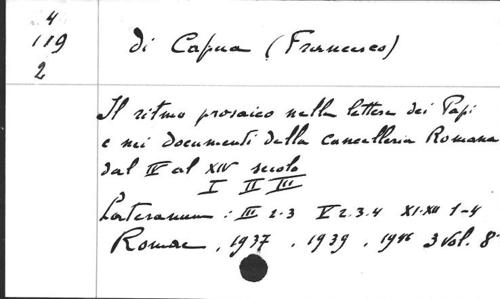 4
119
2
di Capua (Francesco)
Il ritmo prosaico nelle lettere dei Papi
e nei documenti della cancelleria Romana
dal IV al XIV secolo
I II III
Lateranum : III 2-3 V 2.3.4 XI-XII 1-4
Romae, 1937 . 1939 . 1946 3 vol. 8º